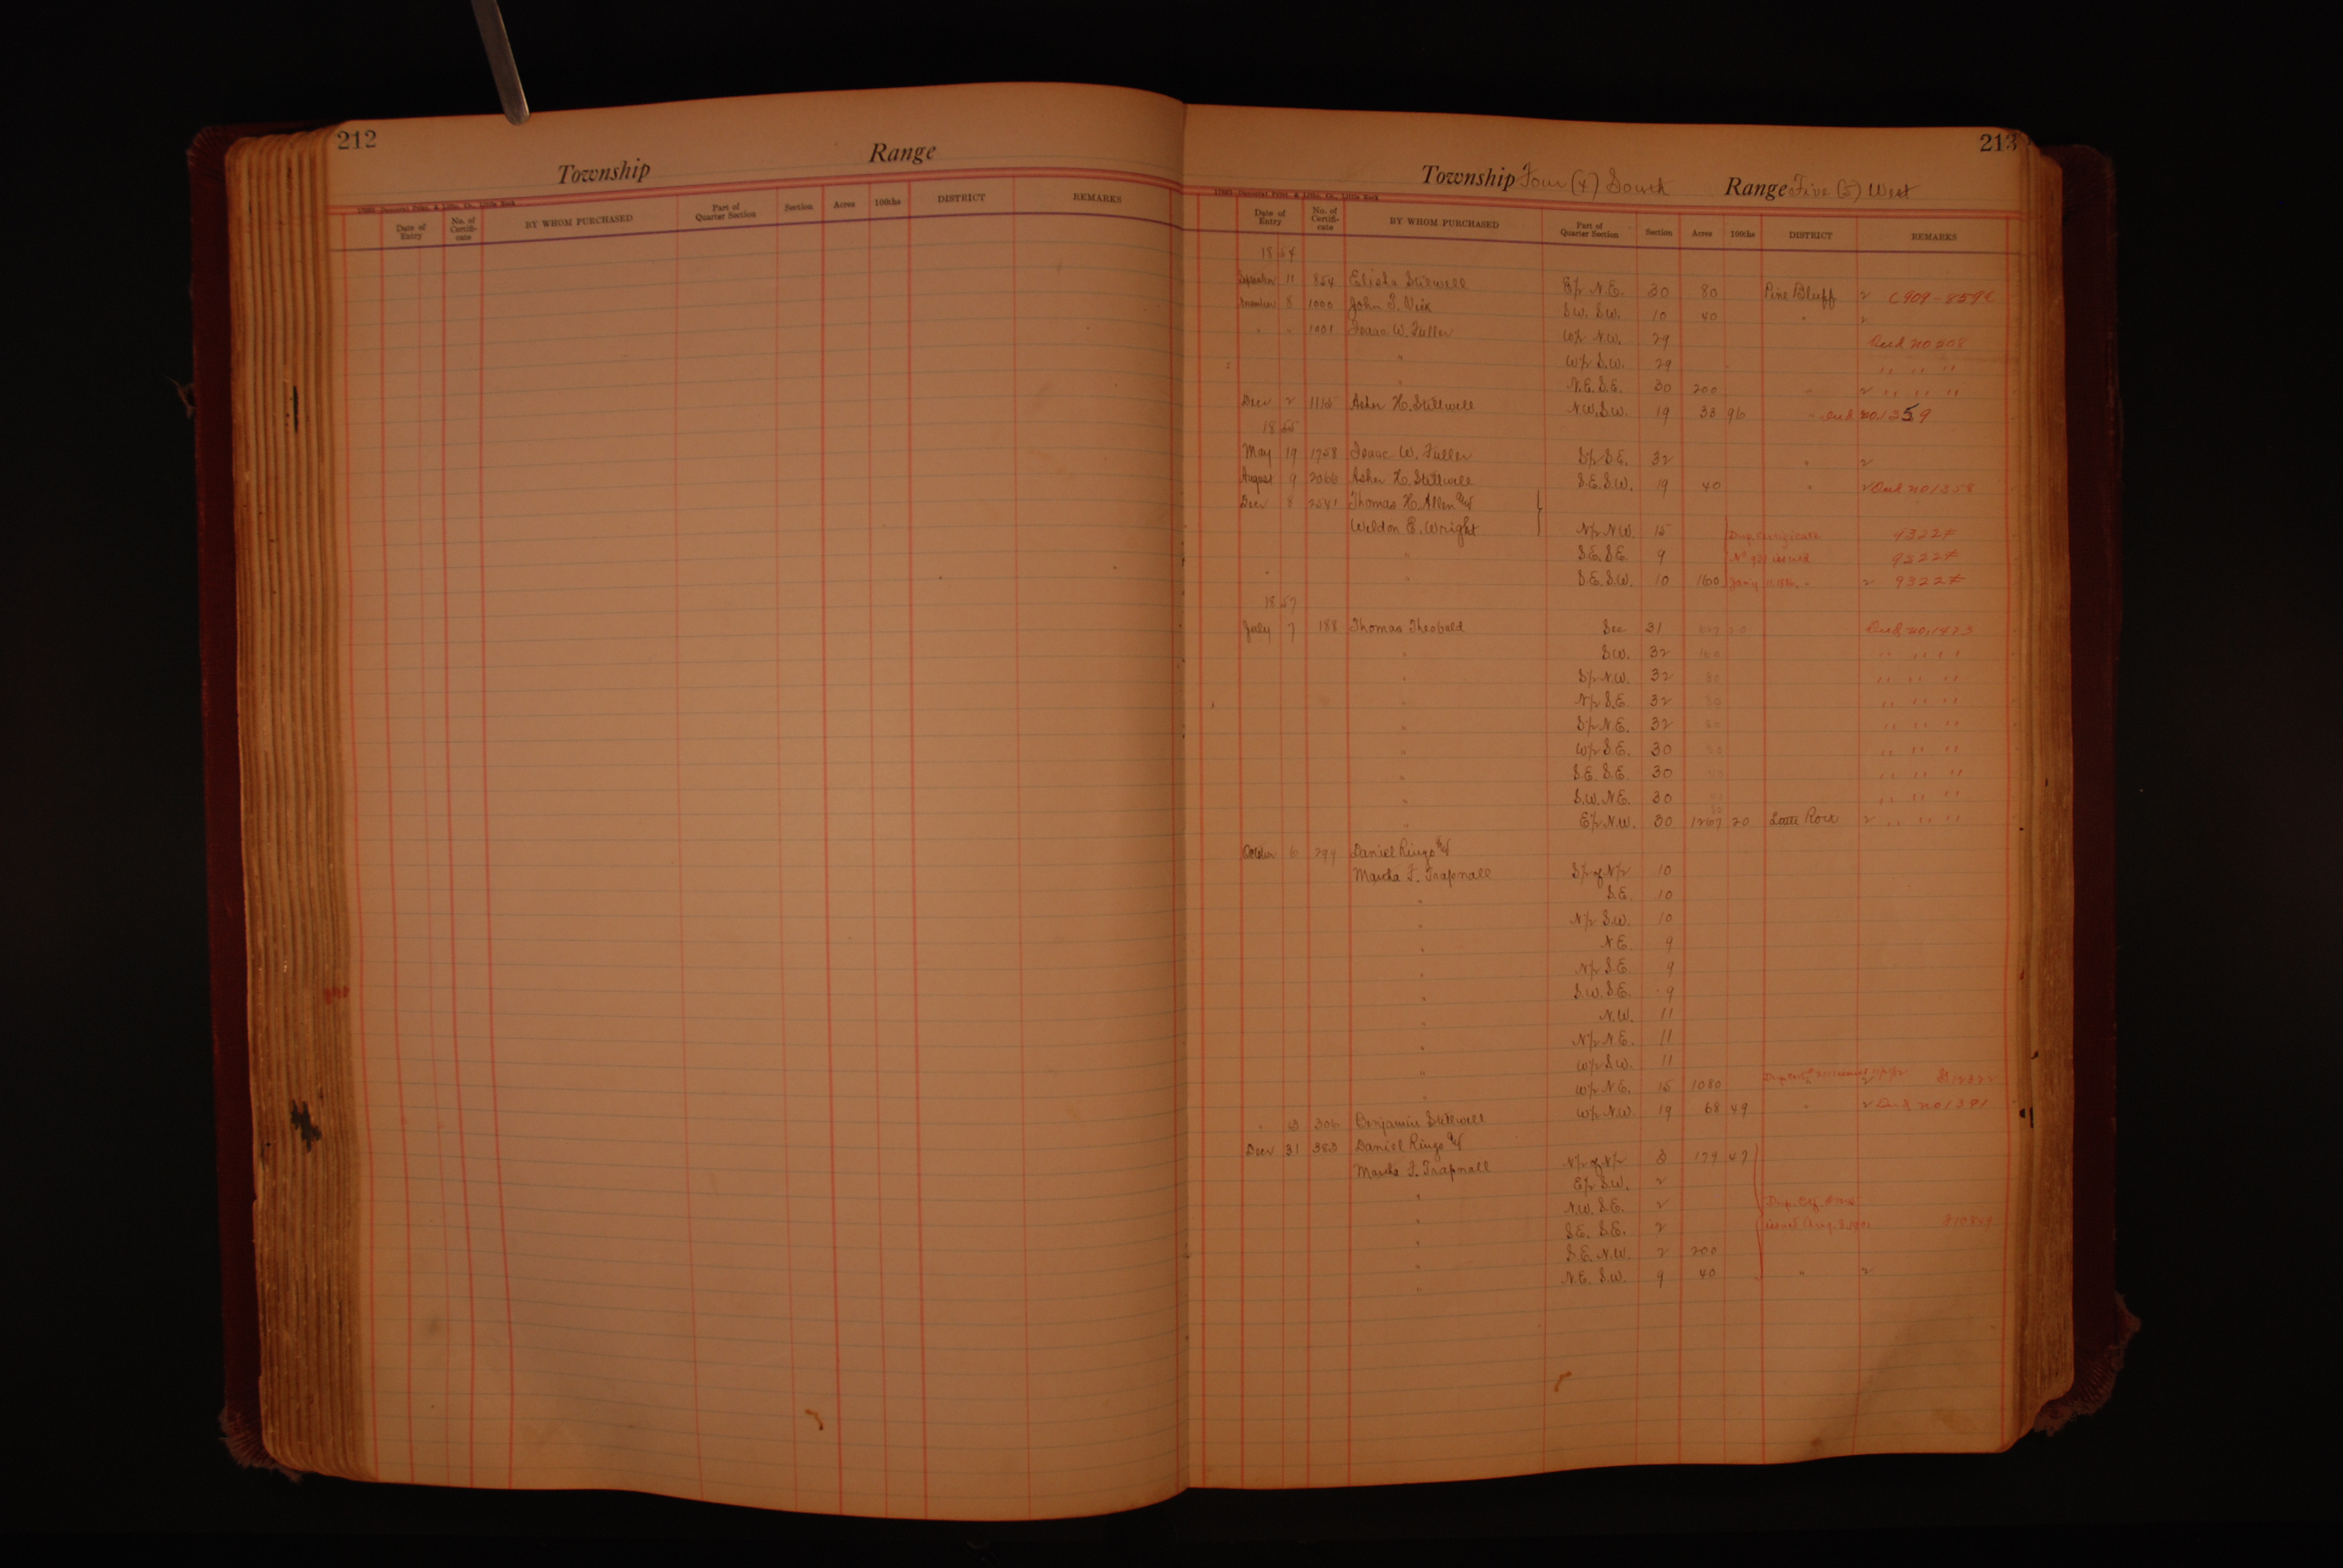 212
Township Range
Date of Entry No. of Certifi-cate BY WHOM PURCHASED Part of Quarter Section Section Acres 100ths DISTRICT REMARKS
213
Township Four (4) South Range Five (5) West
Date of Entry No. of Certifi-cate BY WHOM PURCHASED Part of Quarter Section Section Acres 100ths DISTRICT REMARKS
1854
September 11 854 Elisha Stilwell E½ N.E. 30 80 Pine Bluff
8 1000 John T. Vick S.W. S.W. 10 40 "
" " 1001 Isaac W. Fuller W½ N.W. 29 Deed no 208
" W½ S.W. 29 " " "
" N.E. S.E. 30 200 " " " "
Decr 2 1115 Asher H. Stillwell N.W. S.W. 19 33 96 " Deed no. 1359
1855
May 19 1758 Isaac W. Fuller S½ S.E. 32 "
August 9 2066 Asher H. Stillwell S.E. S.W. 19 40 " Deed no 1358
Decr 8 2541 Thomas H. Allen and
Weldon E. Wright N½ N.W. 15 Dup. Certificate 93227
" S.E. S.E. 9 issued 93227
" S.E. S.W. 10 160 " 93227
1857
July 7 188 Thomas Theobald Sec 31 Deed no. 1473
" S.W. 32 160 " " "
" S½ N.W. 32 80 " " "
" N½ S.E. 32 80 " " "
" S½ N.E. 32 80 " " "
" W½ S.E. 30 80 " " "
" S.E. S.E. 30 40 " " "
" S.W. N.E. 30 " " "
" E½ N.W. 30 1267 20 Little Rock " " "
October 6 299 Daniel Ringo and
Martha F. Trapnall S½ of N½ 10
" S.E. 10
" N½ S.W. 10
" N.E. 9
" N½ S.E. 9
" S.W. S.E. 9
" N.W. 11
" N½ N.E. 11
" W½ S.W. 11
" W½ N.E. 15 1080
" 306 Benjamin Stillwell W½ N.W. 19 68 49 " Deed no 1391
Decr 31 383 Daniel Ringo and
Martha F. Trapnall N½ of N½ 3 179 47
" E½ S.W. 2
" N.W. S.E. 2
" S.E. S.E. 2 issued Aug.
" S.E. N.W. 2 200
" N.E. S.W. 9 40 "